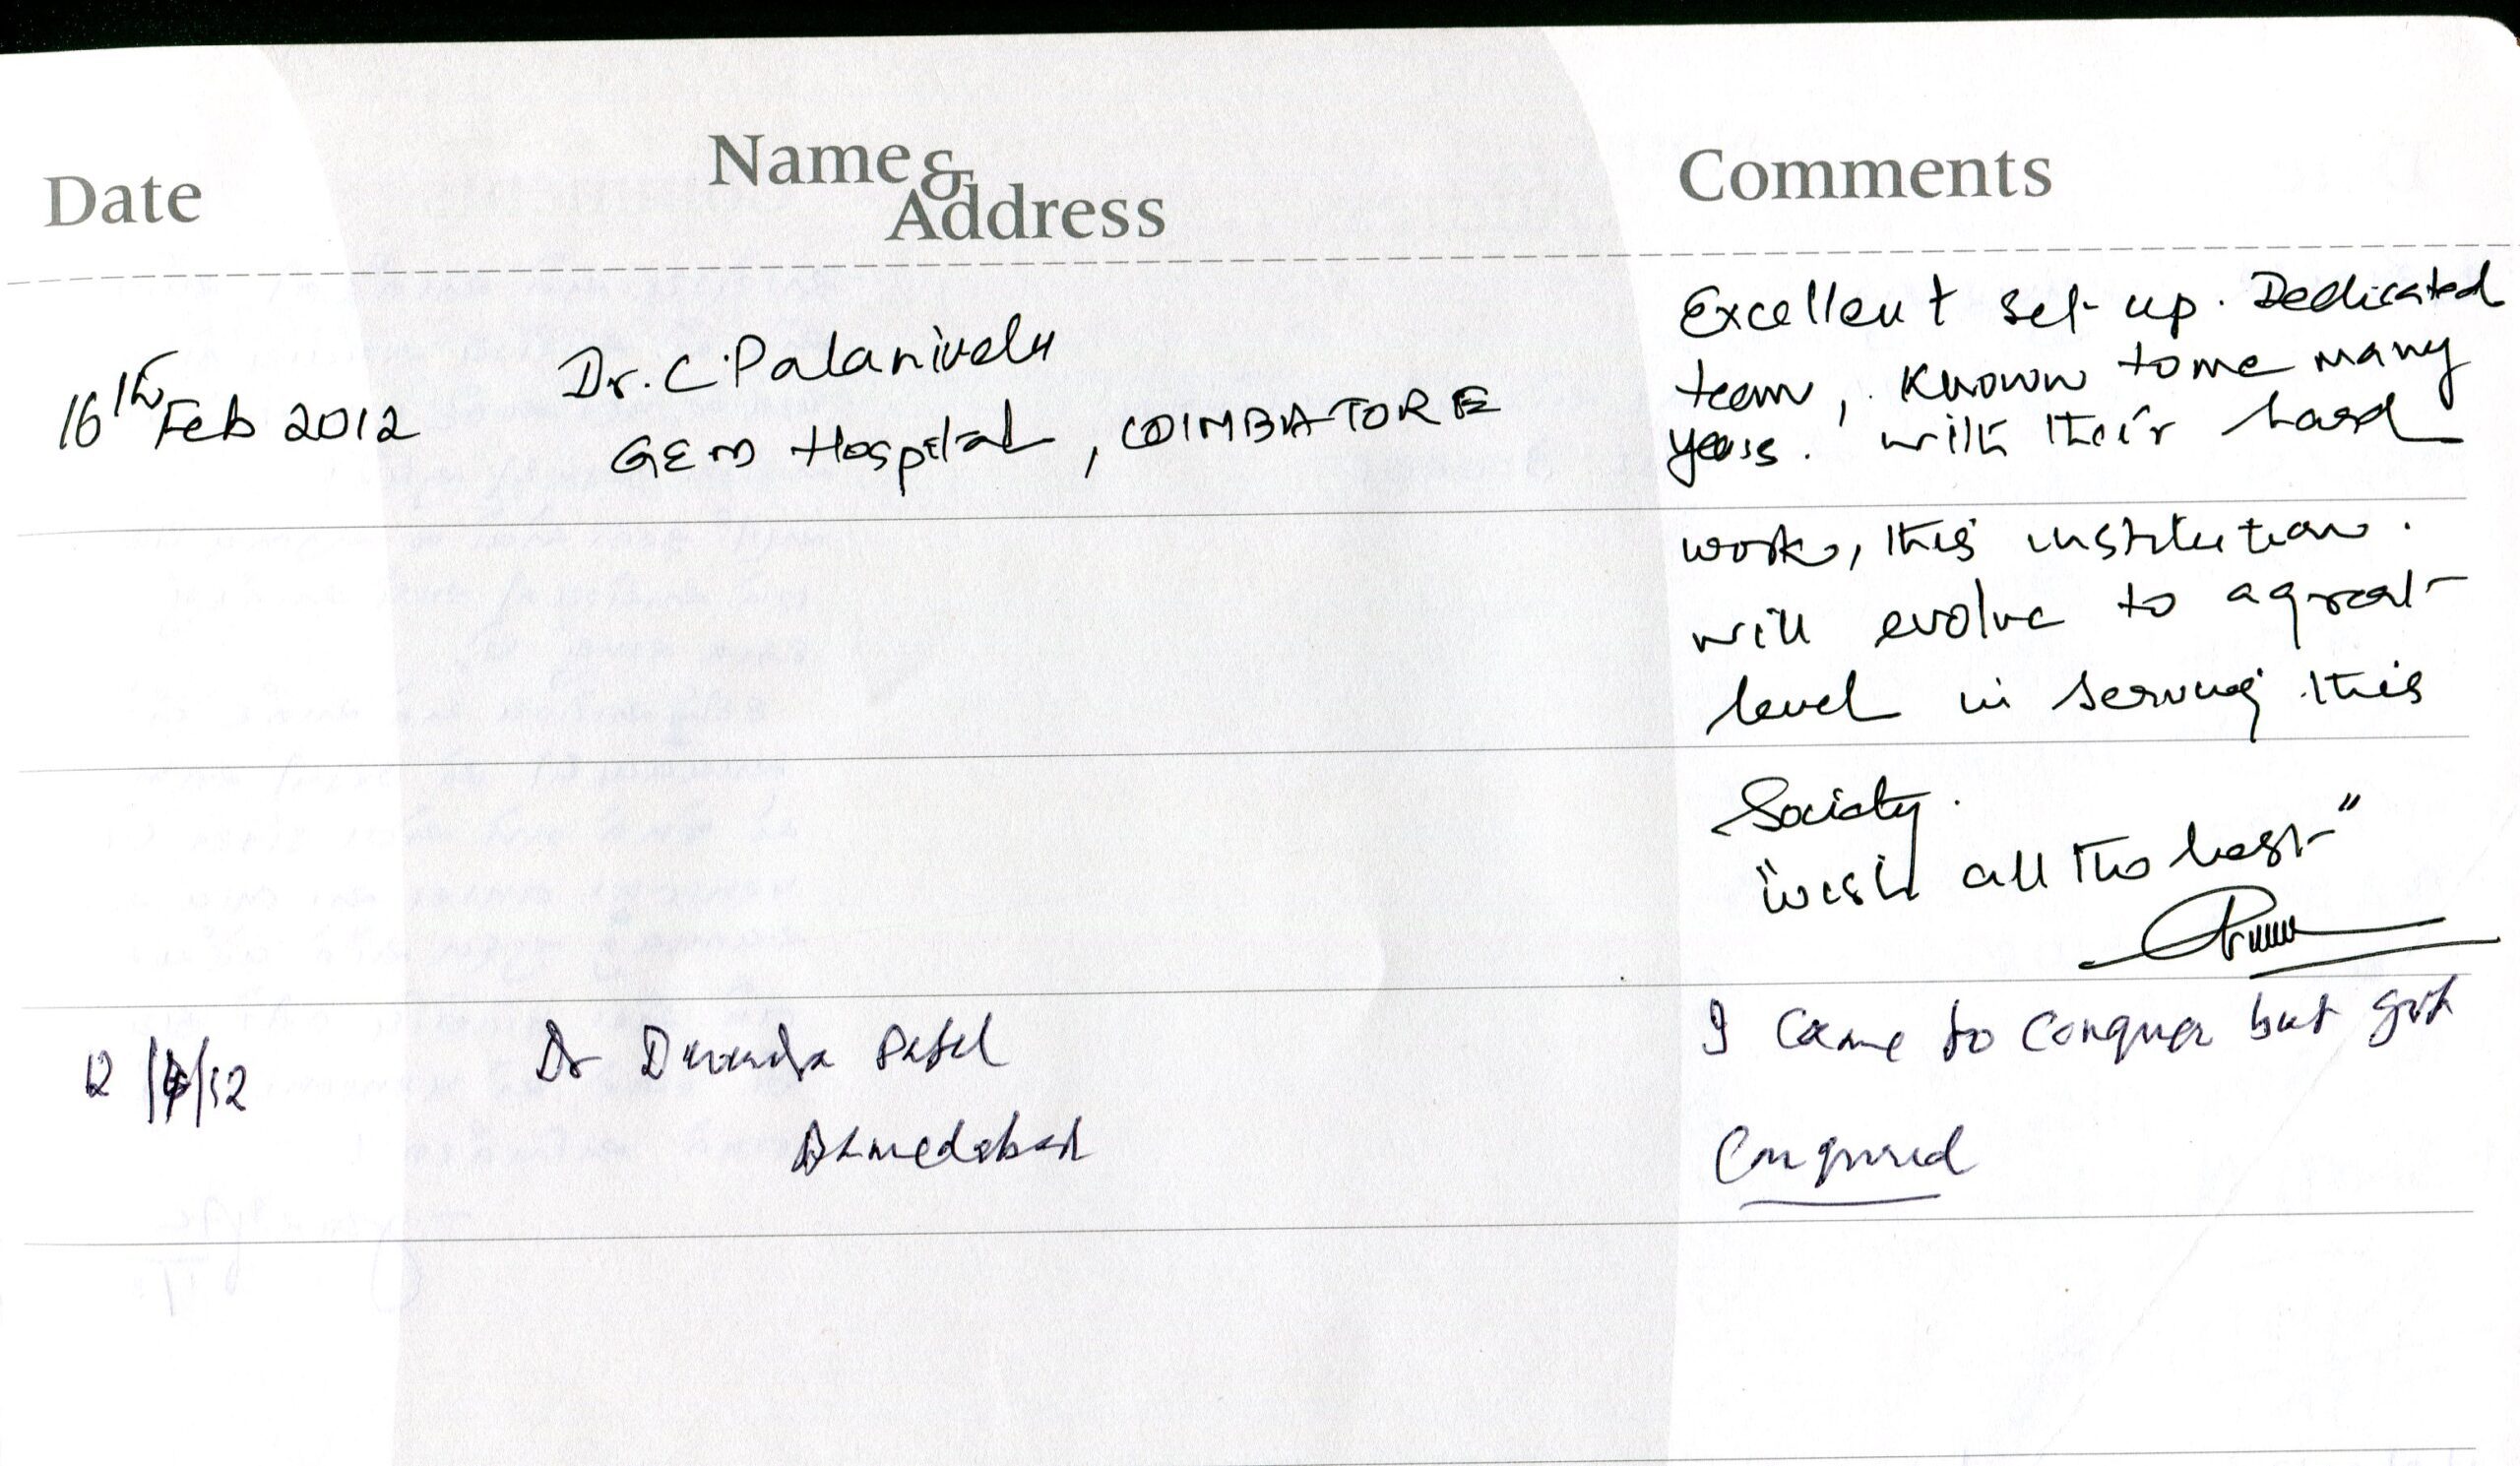 Date
Name &
Address
Comments
16th Feb 2012
Dr. C. Palanivelu
GEM Hospital, COIMBATORE
Excellent set-up. Dedicated
team, known to me many
years. with their hard
work, this institution.
will evolve to a great
level in serving this
Society.
"wish all the best"
12/ /12
Dr Patel
Ahmedabad
I came to conquer but got
Conqured